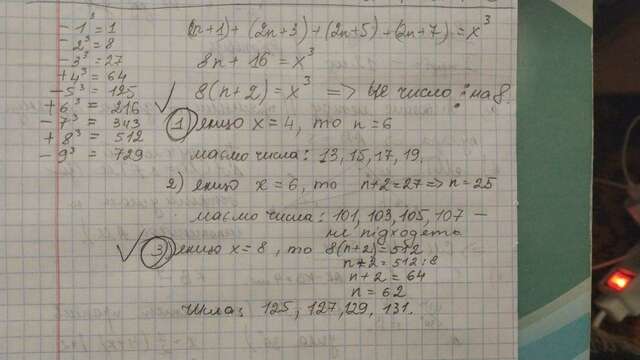 - 1³ = 1
- 2³ = 8
- 3³ = 27
+ 4³ = 64
- 5³ = 125
+ 6³ = 216
- 7³ = 343
+ 8³ = 512
- 9³ = 729
(2n+1) + (2n+3) + (2n+5) + (2n+7) = x³
8n + 16 = x³
8(n+2) = x³ => Це число ⋮ на 8.
1) якщо x = 4, то n = 6
маємо числа: 13, 15, 17, 19.
2) якщо x = 6, то n+2 = 27 => n = 25
маємо числа: 101, 103, 105, 107 –
не підходять
3) якщо x = 8, то 8(n+2) = 512
n+2 = 512 : 8
n + 2 = 64
n = 62
Числа: 125, 127, 129, 131.